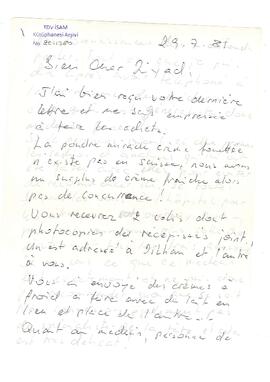 TDV İSAM
Kütüphanesi Arşivi
No
29.7.81
Bien Cher Ziyad,
J'ai bien reçu votre dernière
lettre et me suis empressée
à faire les achats.
La poudre miracle crème fouettée
n'existe pas en Suisse, nous avons
un surplus de crème fraîche alors
pas de concurrence !
Vous recevrez 2 colis dont
photocopies des récépissés joint,
un est adressé à et l'autre
à vous.
Vous ai envoyé des crèmes à
froid à faire avec du lait en
lieu et place de l'autre.
Quant au médecin, personne de